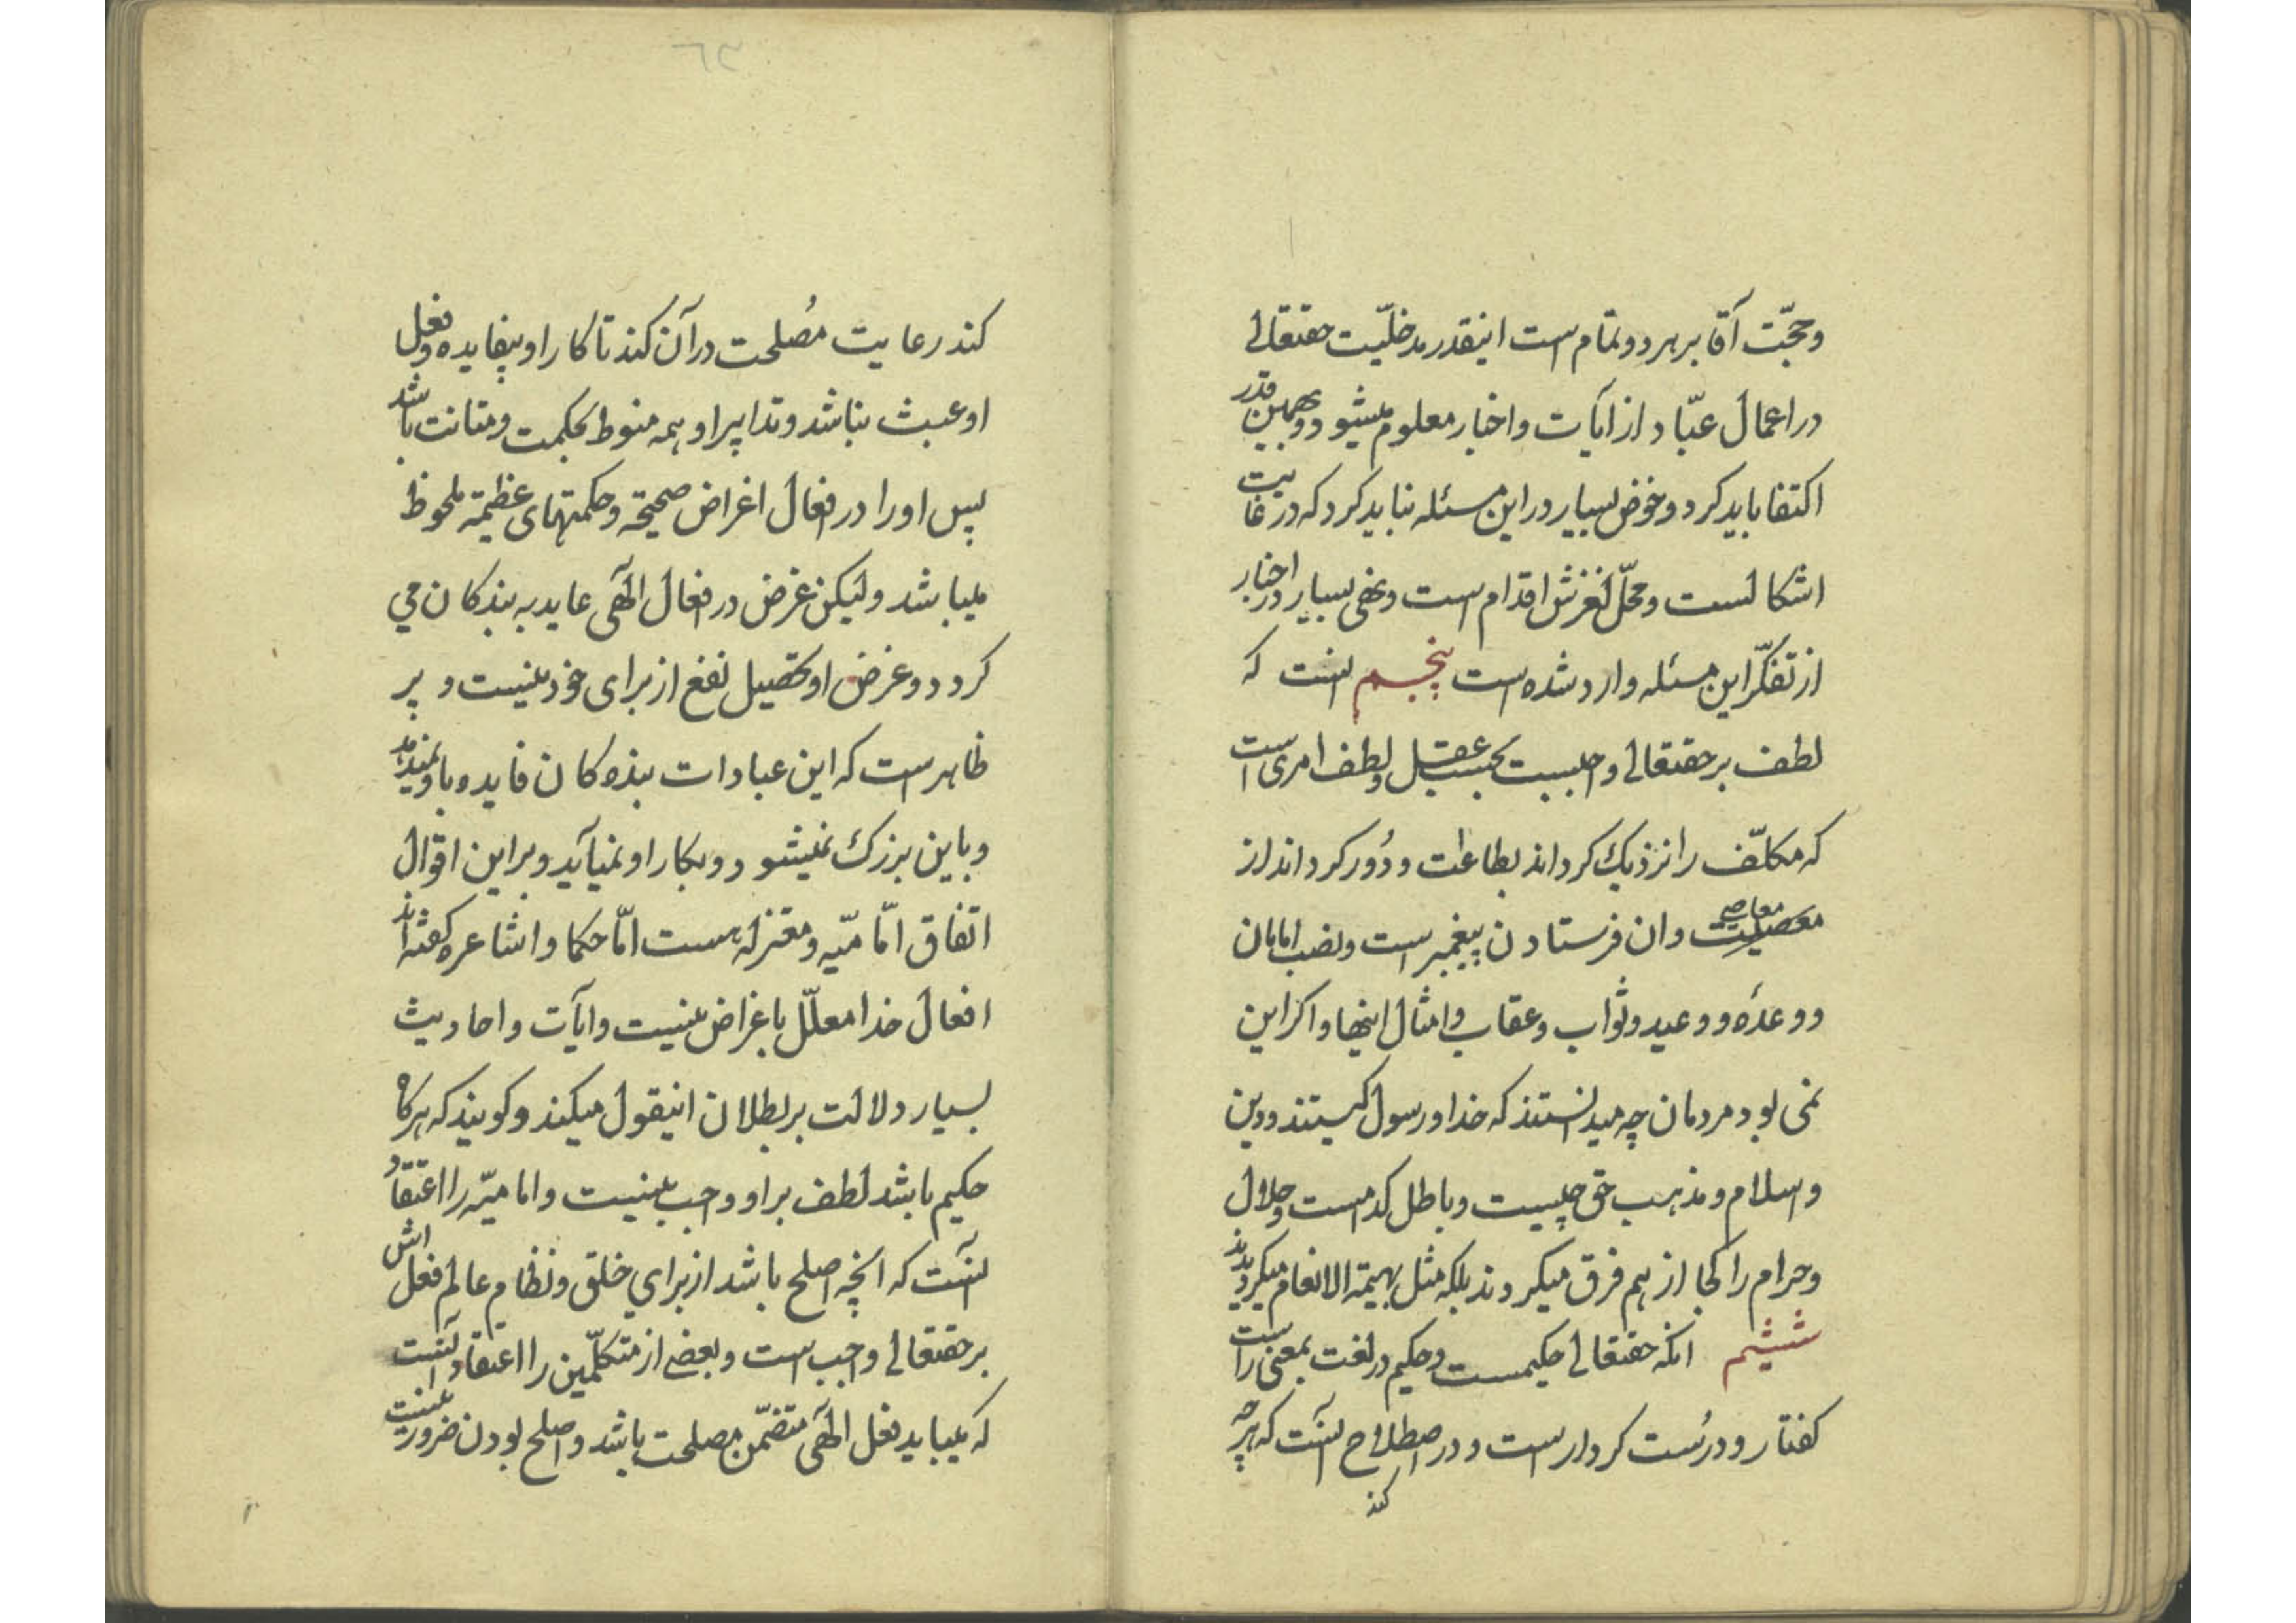 وحجّت آقا بر هر دو تمام است اینقدر مدخلیّت حقتعالی
در اعمال عبّاد از ایات و اخبار معلوم میشود و بهمین قدر
اکتفا باید کرد و خوض بسیار در این مسئله نباید کرد که در غایت
اشکالست و محلّ لغزش اقدام است و نهی بسیار در اخبار
از تفکّر این مسئله وارد شده است پنجم انست که
لطف بر حقتعالی واجبست بحسب عقل و لطف امری است
که مکلّف را نزدیک کرداند بطاعات و دُور کرداند از
معصیت معاصی وان فرستادن پیغمبر است و نصب امامان
و وعدهٔ و وعید و ثواب و عقاب و امثال اینها و اکر این
نمی بود مردمان چه میدانستند که خدا و رسول کیستند و دین
و اسلام و مذهب حق چیست و باطل کدامست و حلال
و حرام را کجا از هم فرق میکردند بلکه مثل بهیمة الانعام میکردیدند
ششیم انکه حقتعالی حکیمست و حکیم در لغت بمعنی راست
کفتار و درُست کردار است و در اصطلاح آنست که هر چه
کند
۶۳
کند رعایت مُصلحت در آن کند تا کار او بیفایده و فعل
او عبث نباشد و تدابیر او همه منوط بحکمت و متانت باشد
پس او را در افعال اغراض صحیحة و حکمتهای عظیمة ملحوظ
میباشد ولیکن غرض در افعال الٓهی عاید به بندکان می
کردد و غرض او تحصیل نفع از برای خود نیست و پر
ظاهر است که این عبادات بنده کان فایده باو نمیدهد
و باین بزرک نمیشود و بکار او نمیآید و بر این اقوال
اتفاق امّامیّه و معتزله هست امّا حکما و اشاعره کفته اند
افعال خدا معلّل باغراض نیست و ایآت و احادیث
بسیار دلالت بر بطلان اینقول میکند و کویند که هرکاه
حکیم باشد لطف بر او واجب نیست و امامیّه را اعتقاد
آنست که انچه اصلح باشد از برای خلق و نظام عالم فعل اش
بر حقتعالی واجب است و بعضی از متکلّمین را اعتقاد آنست
که میباید فعل الٓهی متضمّن مصلحت باشد و اصلح بودن ضرور نیست